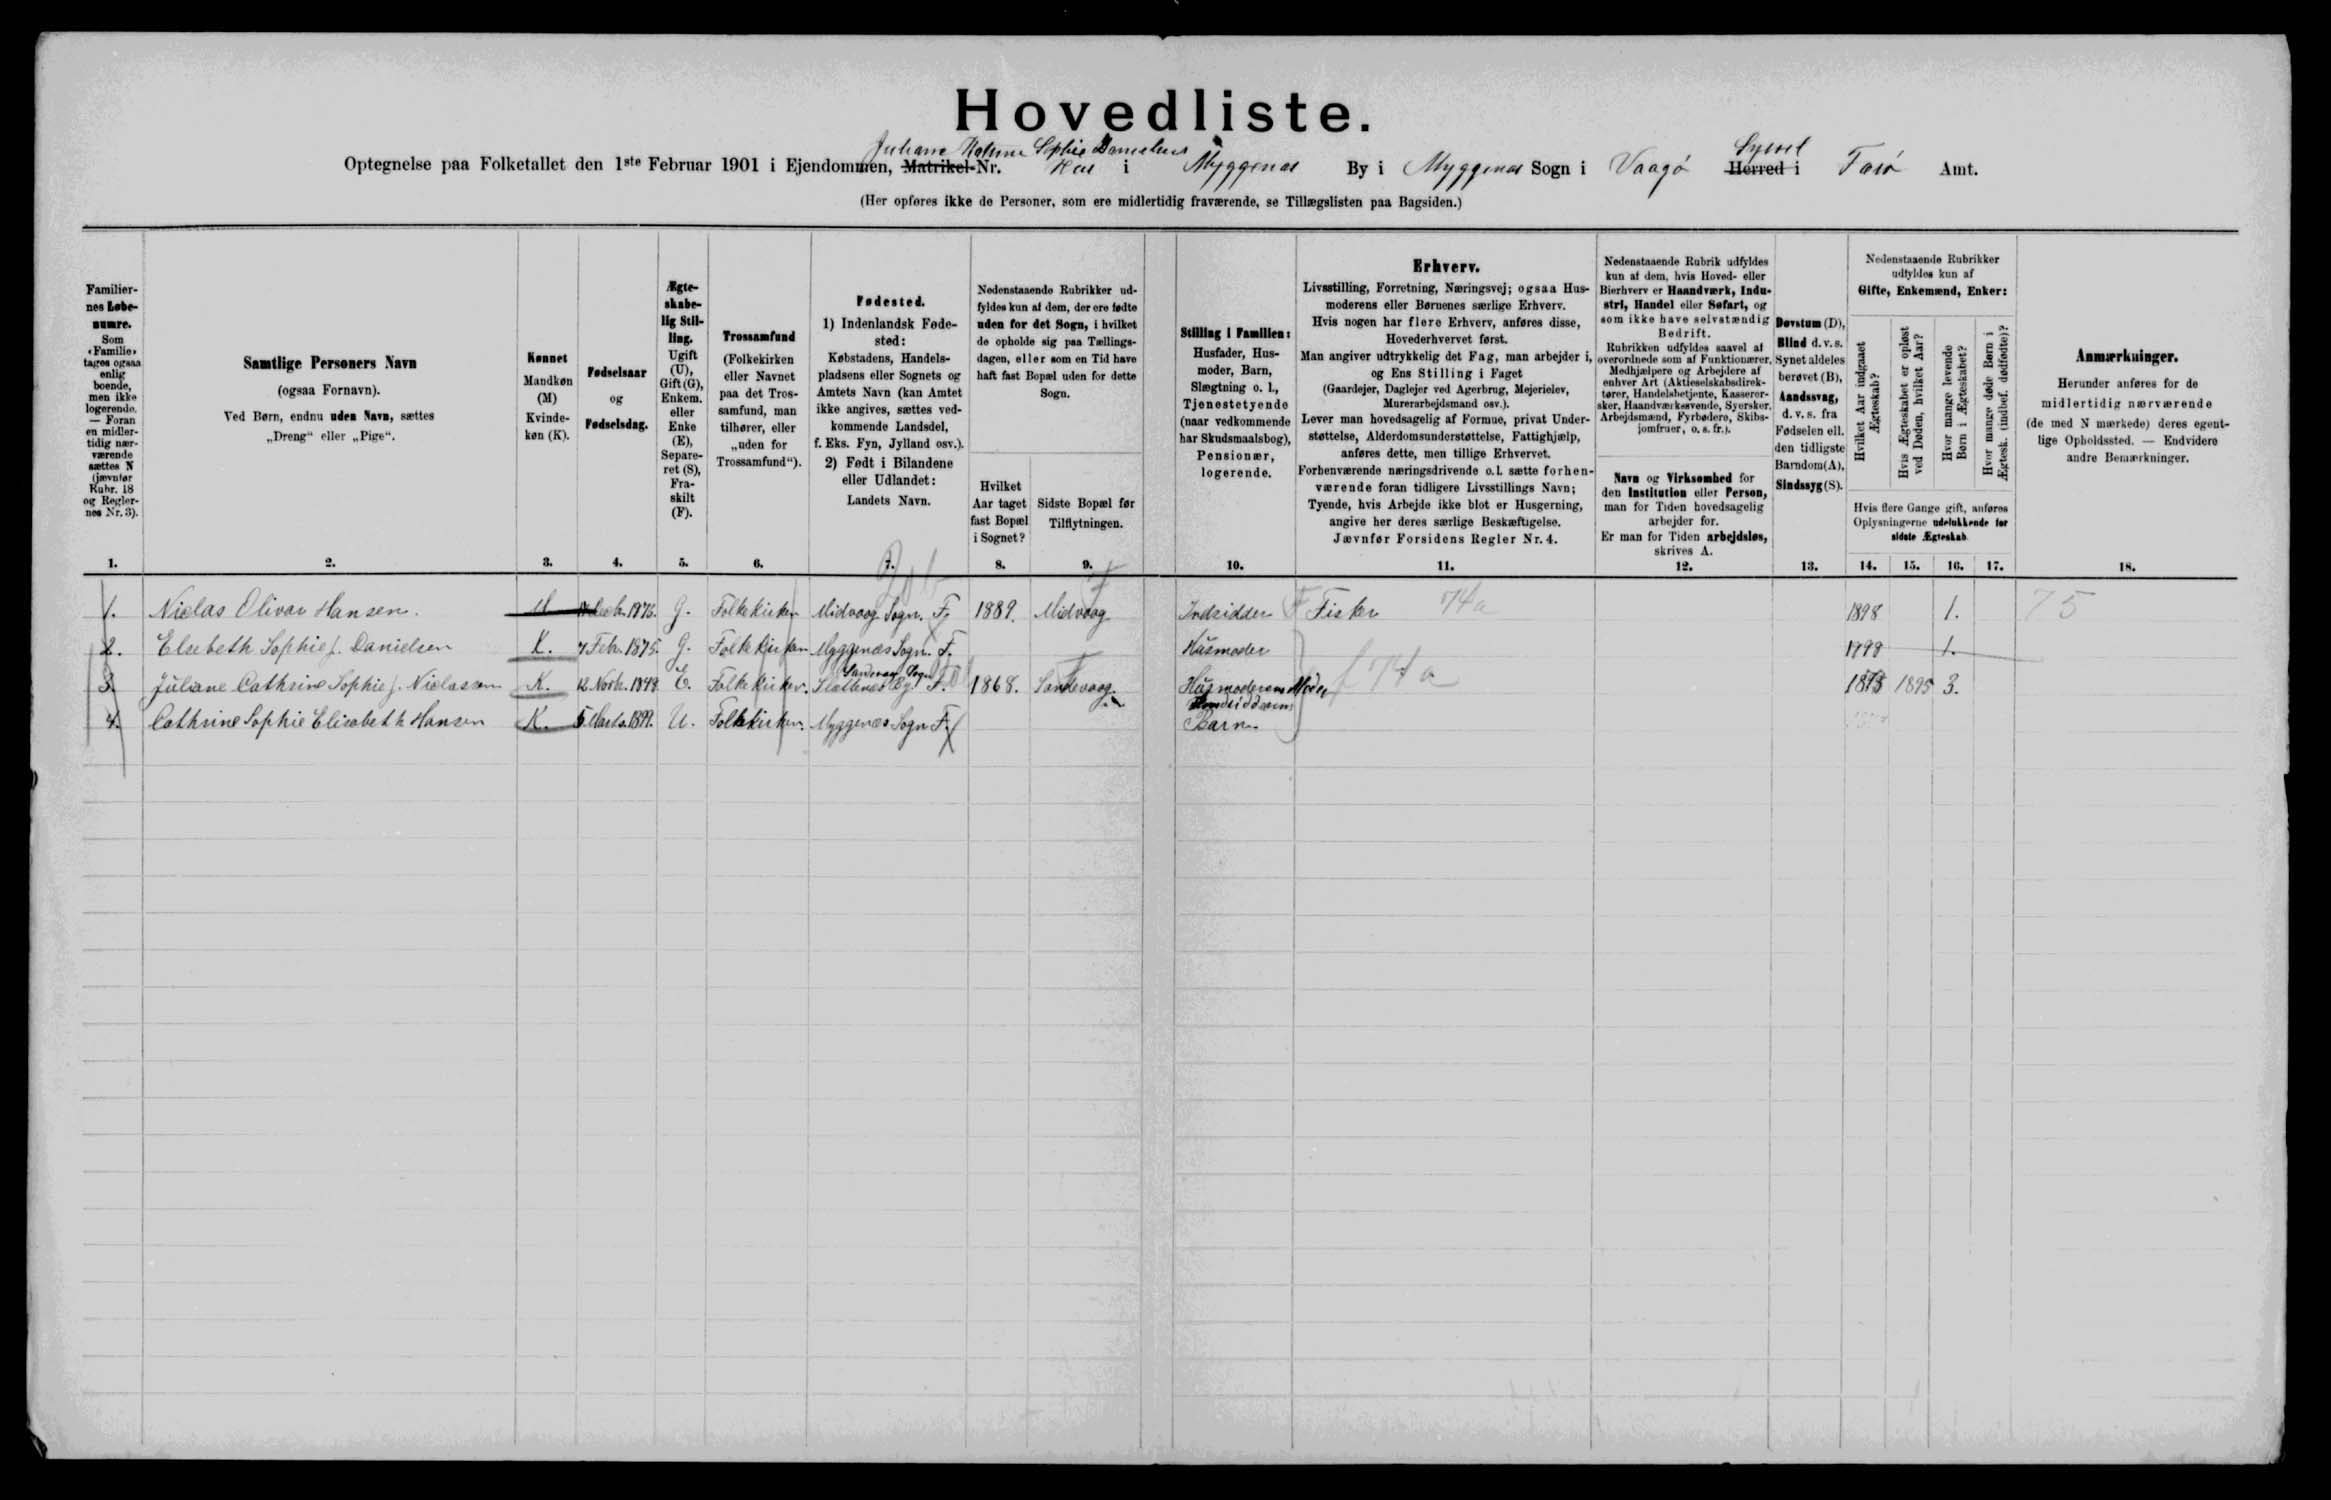 Hovedliste.
Juliane Sophie Danielsens
Syssel
Optegnelse paa Folketallet den 1ste Februar 1901 i Ejendommen, Matrikel-Nr. Hus i Myggenæs By i Myggenæs Sogn i Vaagø Herred i Færø Amt.
(Her opføres ikke de Personer, som ere midlertidig fraværende, se Tillægslisten paa Bagsiden.)
Familier-
nes Løbe-
numre.
Som
«Familie»
tages ogsaa
enlig
boende,
men ikke
logerende.
— Foran
en midler-
tidig nær-
værende
sættes N
(jævnfør
Rubr. 18
og Regler-
nes Nr. 3).
1.
Samtlige Personers Navn
(ogsaa Fornavn).
Ved Børn, endnu uden Navn, sættes
„Dreng“ eller „Pige“.
2.
Kønnet
Mandkøn
(M)
Kvinde-
køn (K).
3.
Fødselsaar
og
Fødselsdag.
4.
Ægte-
skabe-
lig Stil-
ling.
Ugift
(U),
Gift (G),
Enkem.
eller
Enke
(E),
Separe-
ret (S),
Fra-
skilt
(F).
5.
Trossamfund
(Folkekirken
eller Navnet
paa det Tros-
samfund, man
tilhører, eller
„uden for
Trossamfund“).
6.
Fødested.
1) Indenlandsk Føde-
sted:
Købstadens, Handels-
pladsens eller Sognets og
Amtets Navn (kan Amtet
ikke angives, sættes ved-
kommende Landsdel,
f. Eks. Fyn, Jylland osv.).
2) Født i Bilandene
eller Udlandet:
Landets Navn.
7.
Nedenstaaende Rubrikker ud-
fyldes kun af dem, der ere fødte
uden for det Sogn, i hvilket
de opholde sig paa Tællings-
dagen, eller som en Tid have
haft fast Bopæl uden for dette
Sogn.
Hvilket
Aar taget
fast Bopæl
i Sognet?
8.
Sidste Bopæl før
Tilflytningen.
9.
Stilling i Familien:
Husfader, Hus-
moder, Barn,
Slægtning o. l.,
Tjenestetyende
(naar vedkommende
har Skudsmaalsbog),
Pensionær,
logerende.
10.
Erhverv.
Livsstilling, Forretning, Næringsvej; ogsaa Hus-
moderens eller Børnenes særlige Erhverv.
Hvis nogen har flere Erhverv, anføres disse,
Hovederhvervet først.
Man angiver udtrykkelig det Fag, man arbejder i,
og Ens Stilling i Faget
(Gaardejer, Daglejer ved Agerbrug, Mejerielev,
Murerarbejdsmand osv.).
Lever man hovedsagelig af Formue, privat Under-
støttelse, Alderdomsunderstøttelse, Fattighjælp,
anføres dette, men tillige Erhvervet.
Forhenværende næringsdrivende o. l. sætte forhen-
værende foran tidligere Livsstillings Navn;
Tyende, hvis Arbejde ikke blot er Husgerning,
angive her deres særlige Beskæftigelse.
Jævnfør Forsidens Regler Nr. 4.
11.
Nedenstaaende Rubrik udfyldes
kun af dem, hvis Hoved- eller
Bierhverv er Haandværk, Indu-
stri, Handel eller Søfart, og
som ikke have selvstændig
Bedrift.
Rubrikken udfyldes saavel af
overordnede som af Funktionærer,
Medhjælpere og Arbejdere af
enhver Art (Aktieselskabsdirek-
tører, Handelsbetjente, Kasserer-
sker, Haandværkssvende, Syersker,
Arbejdsmænd, Fyrbødere, Skibs-
jomfruer, o. s. fr.).
Navn og Virksomhed for
den Institution eller Person,
man for Tiden hovedsagelig
arbejder for.
Er man for Tiden arbejdsløs,
skrives A.
12.
Døvstum (D),
Blind d. v. s.
Synet aldeles
berøvet (B),
Aandssvag,
d. v. s. fra
Fødselen ell.
den tidligste
Barndom (A),
Sindssyg (S).
13.
Nedenstaaende Rubrikker
udfyldes kun af
Gifte, Enkemænd, Enker:
Hvilket Aar indgaaet
Ægteskab?
Hvis Ægteskabet er opløst
ved Døden, hvilket Aar?
Hvor mange levende
Børn i Ægteskabet?
Hvor mange døde Børn i
Ægtesk. (indbef. dødfødte)?
Hvis flere Gange gift, anføres
Oplysningerne udelukkende for
sidste Ægteskab.
14. 15. 16. 17.
Anmærkninger.
Herunder anføres for de
midlertidig nærværende
(de med N mærkede) deres egent-
lige Opholdssted. — Endvidere
andre Bemærkninger.
18.
1. Niclas Olivar Hansen. M 1876. G. Folkekirken Midvaag Sogn. F. 1889. Midvaag Indsidder F Fisker 74a 1898 1. 75
2. Elsebeth Sophie f. Danielsen K. 7 Feb. 1875. G. Folkekirken Myggenæs Sogn. F. Husmoder 1898 1.
Sandevaag Sogn
3. Juliane Cathrine Sophie f. Niclassen K. 12 Novb. 1848. E. Folkekirken. Slættenæs By. F. 1868. Sandevaag. Husmoderens Moder f 74a 1873 1895 3.
Indsidderens
4. Cathrine Sophie Elisabeth Hansen K. 5 Marts 1899. U. Folkekirken. Myggenæs Sogn F. Barn.